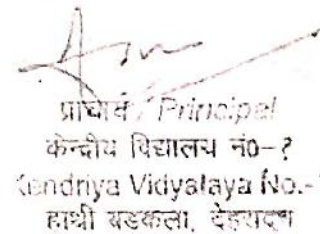 प्राचार्य / Principal
केन्द्रीय विद्यालय नं०-१
Kendriya Vidyalaya No.-
हाथी बडकला, देहरादून